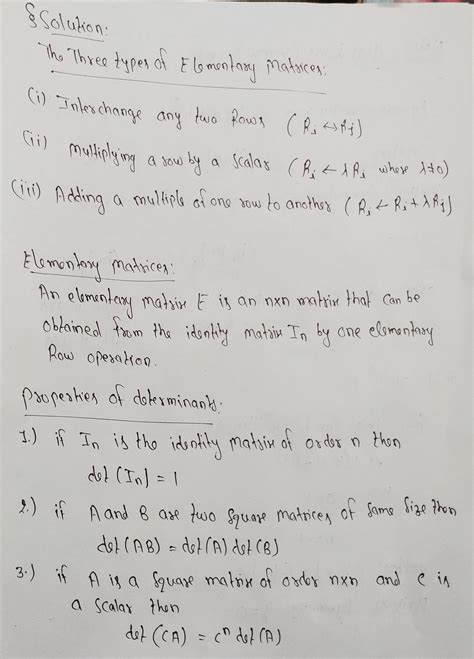 § Solution:
The Three types of Elementary Matrices:
(i) Interchange any two Rows (Ri ↔ Rj)
(ii) Multiplying a row by a Scalar (Ri ← λRi where λ≠0)
(iii) Adding a multiple of one row to another (Ri ← Ri + λRj)
Elementary Matrices:
An elementary matrix E is an nxn matrix that can be
obtained from the identity matrix In by one elementary
Row operation.
Properties of determinants.
1.) if In is the identity matrix of order n then
det (In) = 1
2.) if A and B are two square matrices of same size then
det (AB) = det(A) det(B)
3.) if A is a square matrix of order nxn and c is
a scalar then
det (cA) = cⁿ det(A)